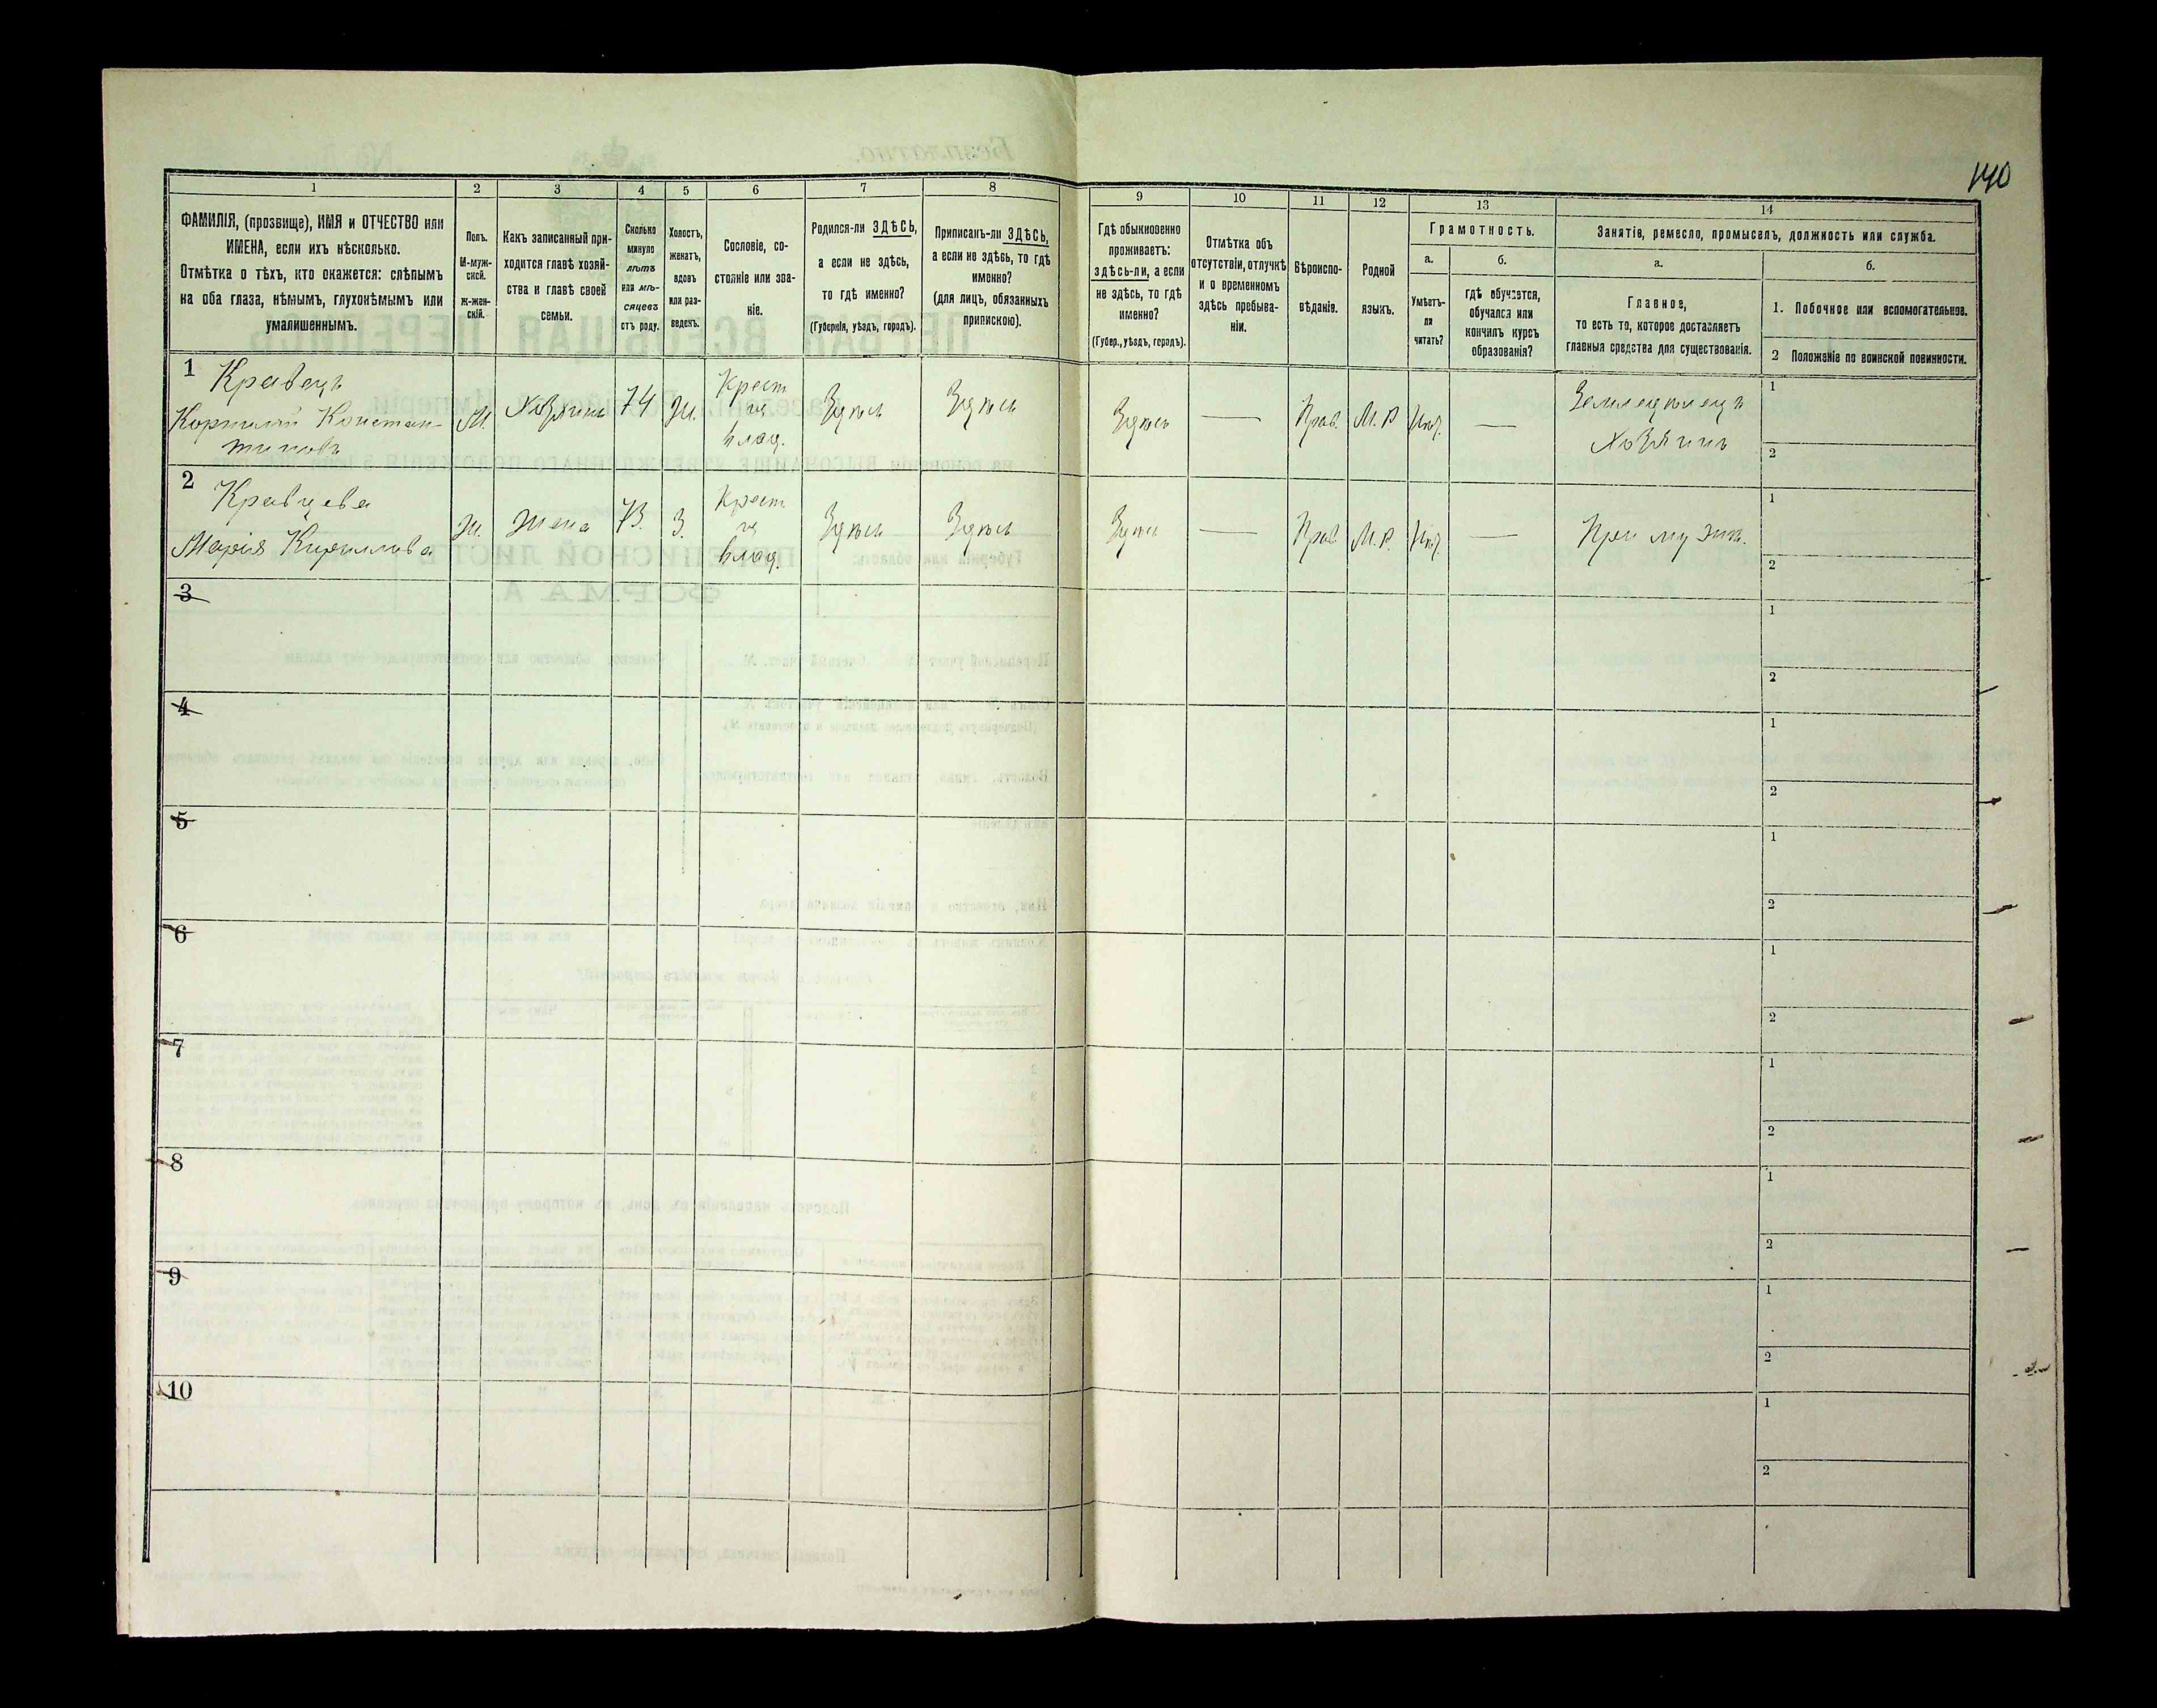 140
1
2
3
4
5
6
7
8
9
10
11
12
13
14
ФАМИЛІЯ, (прозвище), ИМЯ и ОТЧЕСТВО или
ИМЕНА, если ихъ нѣсколько.
Отмѣтка о тѣхъ, кто окажется: слѣпымъ
на оба глаза, нѣмымъ, глухонѣмымъ или
умалишеннымъ.
Полъ.
М-муж-
ской.
ж-жен-
скій.
Какъ записанный при-
ходится главѣ хозяй-
ства и главѣ своей
семьи.
Сколько
минуло
лѣтъ
или мѣ-
сяцевъ
отъ роду.
Холостъ,
женатъ,
вдовъ
или раз-
веденъ.
Сословіе, со-
стояніе или зва-
ніе.
Родился-ли ЗДѢСЬ,
а если не здѣсь,
то гдѣ именно?
(Губернія, уѣздъ, городъ).
Приписанъ-ли ЗДѢСЬ,
а если не здѣсь, то гдѣ
именно?
(для лицъ, обязанныхъ
припискою).
Гдѣ обыкновенно
проживаетъ:
здѣсь-ли, а если
не здѣсь, то гдѣ
именно?
(Губер., уѣздъ, городъ).
Отмѣтка объ
отсутствіи, отлучкѣ
и о временномъ
здѣсь пребыва-
ніи.
Вѣроиспо-
вѣданіе.
Родной
языкъ.
Грамотность.
а.
Умѣетъ-
ли
читать?
б.
гдѣ обучается,
обучался или
кончилъ курсъ
образованія?
Занятіе, ремесло, промыселъ, должность или служба.
а.
Главное,
то есть то, которое доставляетъ
главныя средства для существованія.
б.
1. Побочное или вспомогательное.
2 Положеніе по воинской повинности.
1 Кравецъ
Корнилій Констан-
тиновъ
М.
Хозяинъ
74
Ж.
Крест
влад.
Здѣсь
Здѣсь
Здѣсь
—
Прав.
М. Р
—
Земледѣлецъ
Хозяинъ
1
2
2 Кравцева
Марія Кирилова
Ж.
Жена
73.
З.
Крест
влад.
Здѣсь
Здѣсь
Здѣсь
—
Прав
М. Р.
—
При мужѣ.
1
2
3
1
2
4
1
2
5
1
2
6
1
2
7
1
2
8
1
2
9
1
2
10
1
2